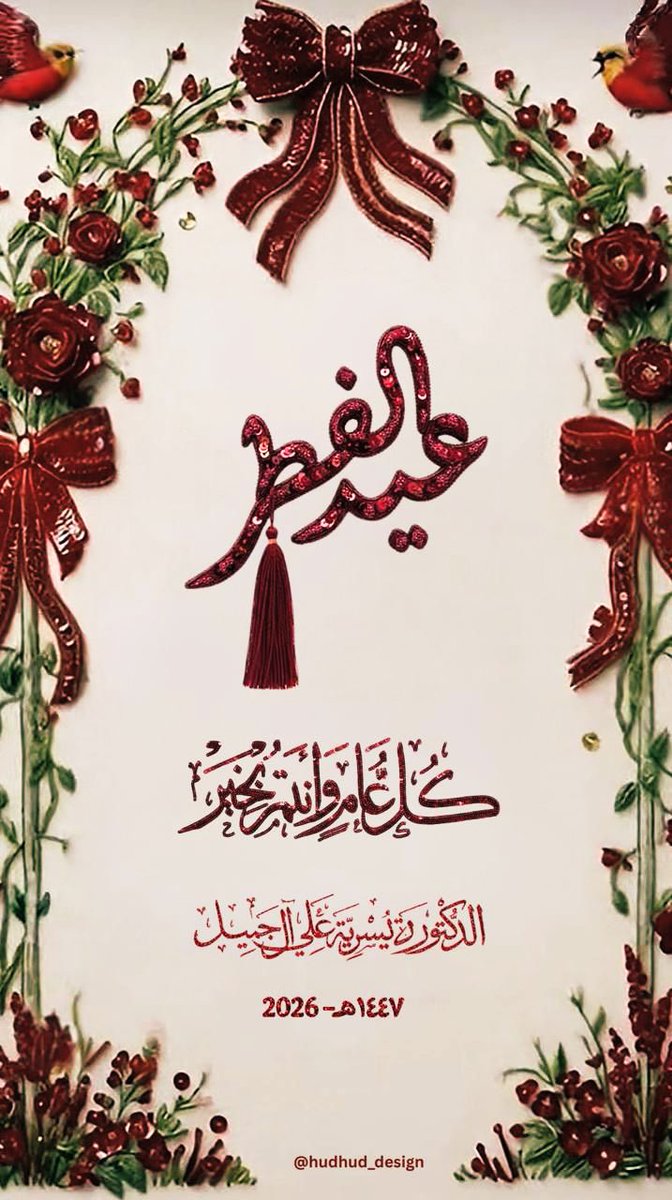 عيد الفطر
كُل عَام وَأنتُم بِخَير
الدكتورة يُسْرِيَّة عَلي آل جَميل
١٤٤٧هـ - 2026
@hudhud_design